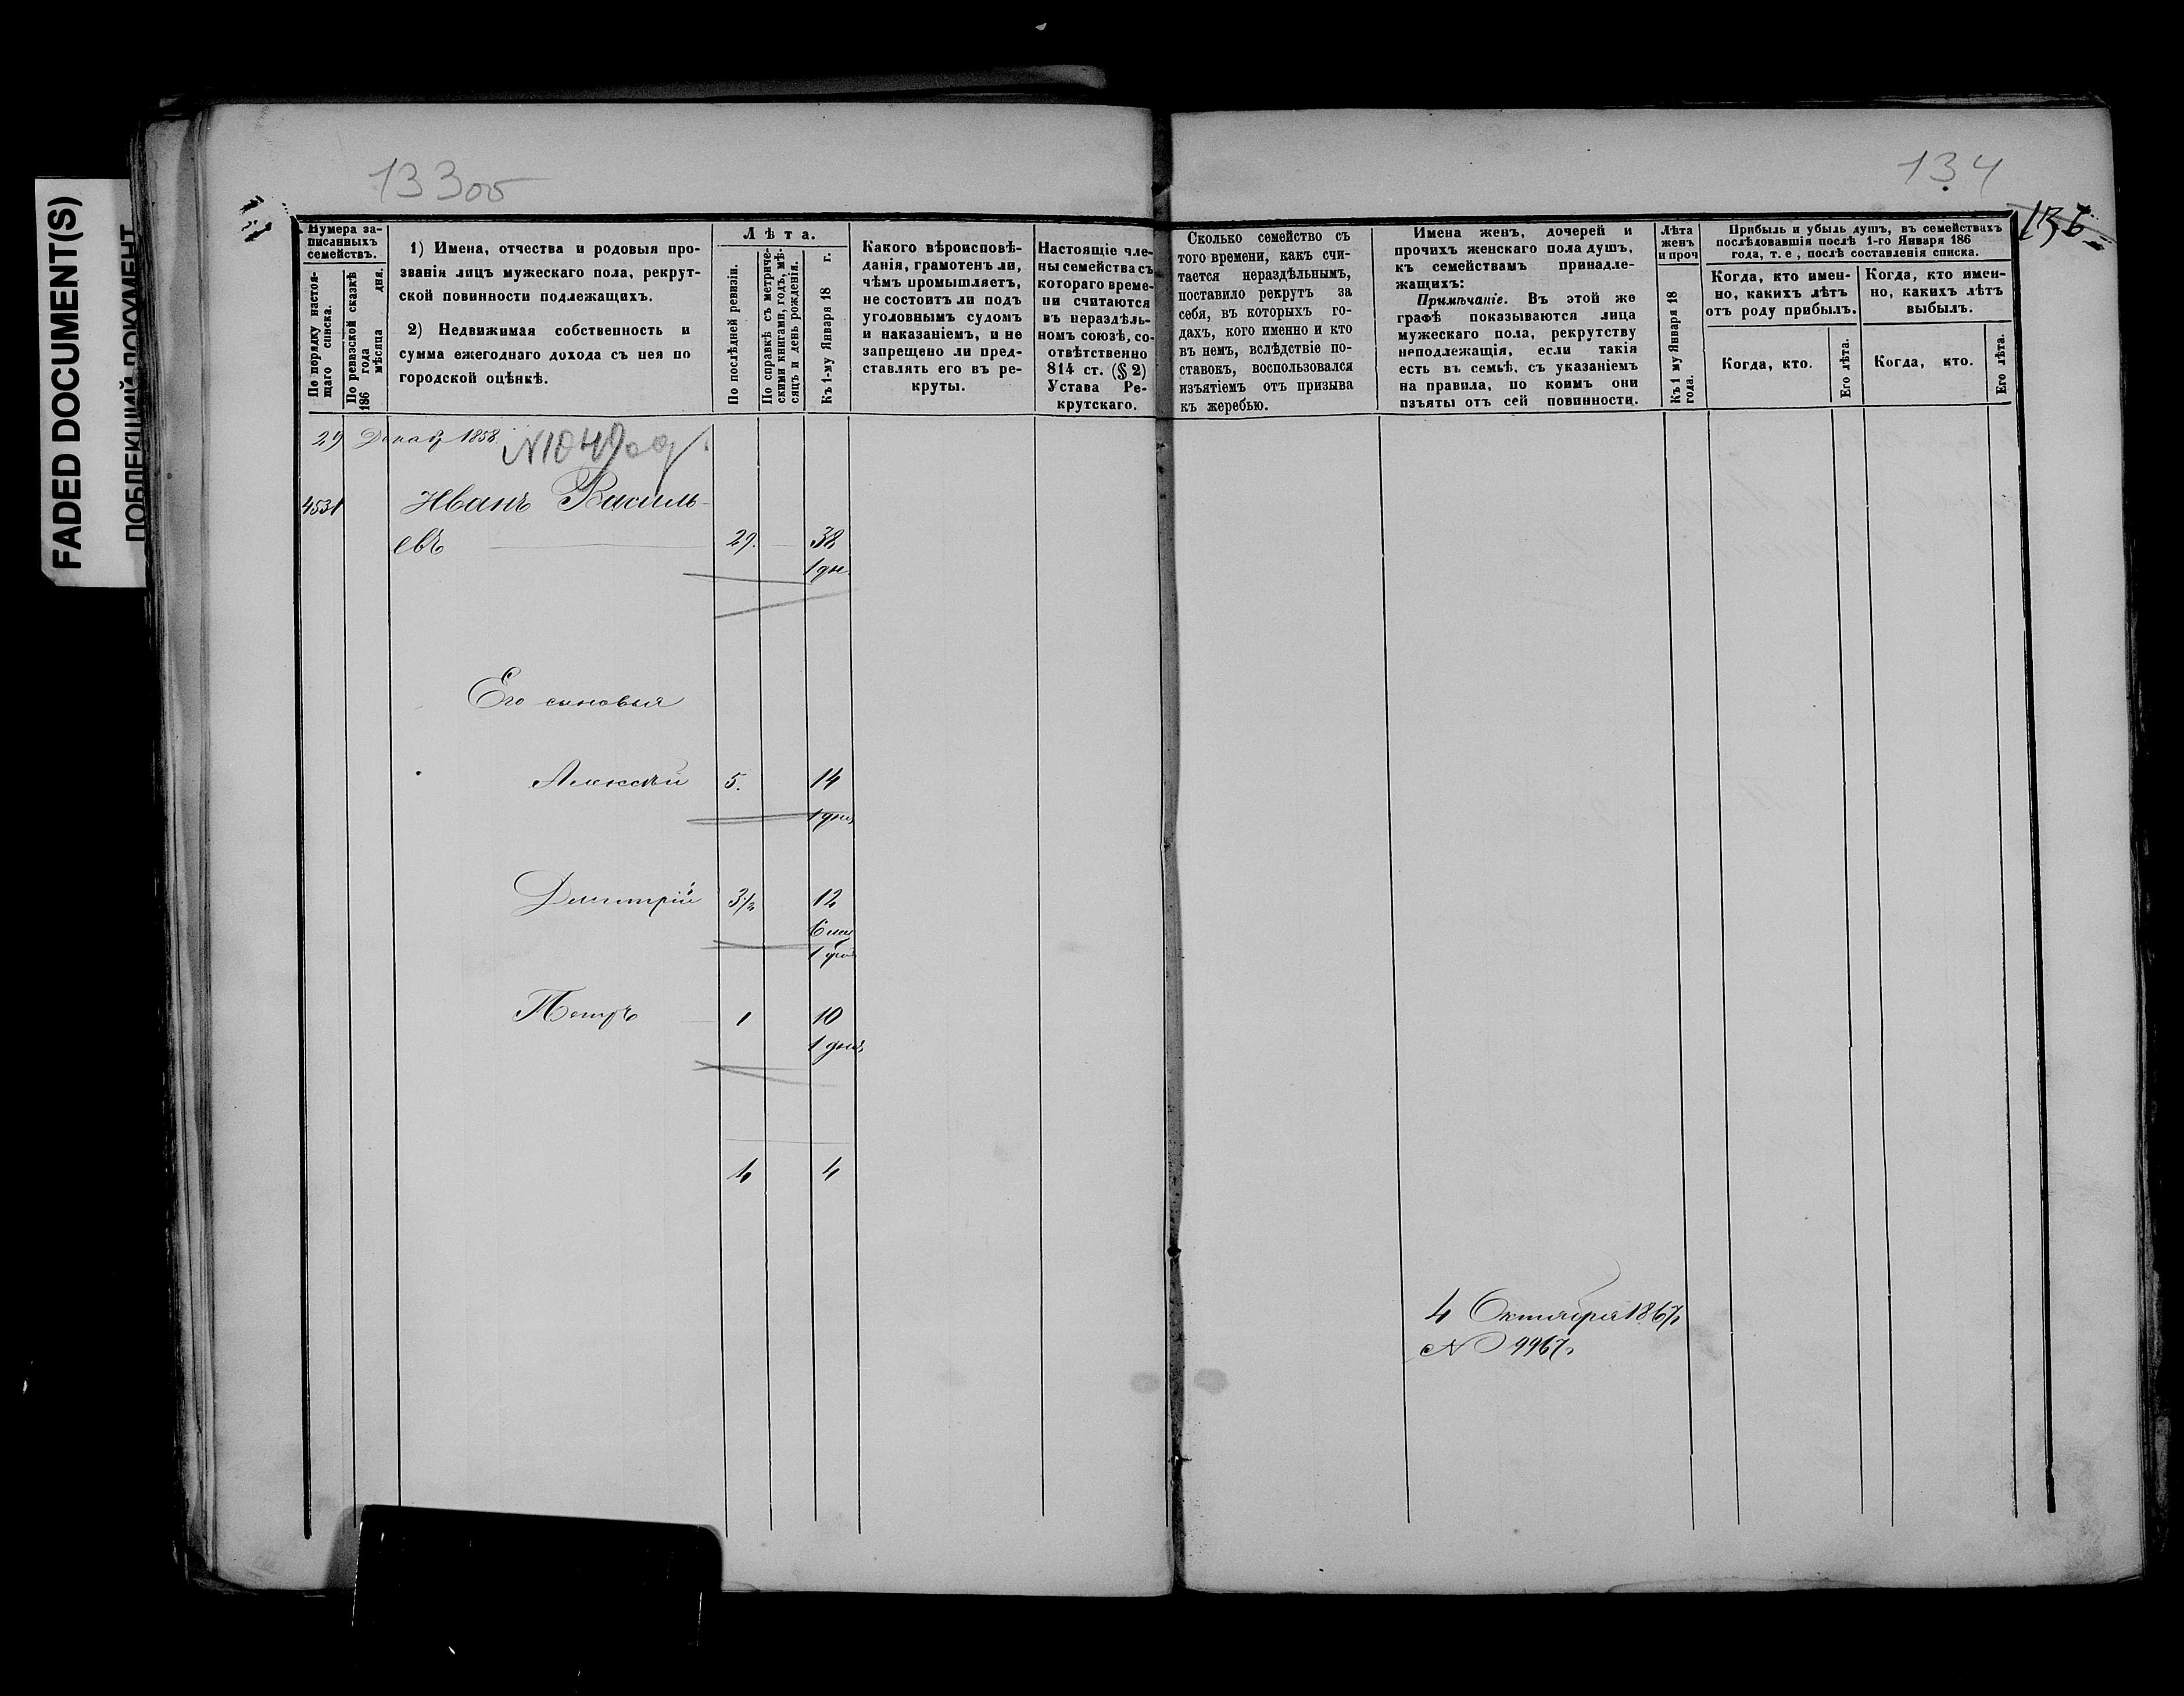 FADED DOCUMENT(S)
133об
134
136
Нумера за-
писанныхъ
семействъ.
По порядку настоя-
щаго списка.
По ревизской сказкѣ
186 года
мѣсяца дня.
1) Имена, отчества и родовыя про-
званія лицъ мужескаго пола, рекрут-
ской повинности подлежащихъ.
2) Недвижимая собственность и
сумма ежегоднаго дохода съ нея по
городской оцѣнкѣ.
Лѣта.
По послѣдней ревизіи.
По справкѣ съ метриче-
скими книгами, годъ, мѣ-
сяцъ и день рожденія.
Къ 1-му Января 18 г.
Какого вѣроисповѣ-
данія, грамотенъ ли,
чѣмъ промышляетъ,
не состоитъ ли подъ
уголовнымъ судомъ
и наказаніемъ, и не
запрещено ли пред-
ставлять его въ ре-
круты.
Настоящіе чле-
ны семейства съ
котораго време-
ни считаются
въ нераздѣль-
номъ союзѣ, со-
отвѣтственно
814 ст. (§ 2)
Устава Ре-
крутскаго.
Сколько семейство съ
того времени, какъ счи-
тается нераздѣльнымъ,
поставило рекрутъ за
себя, въ которыхъ го-
дахъ, кого именно и кто
въ немъ, вслѣдствіе по-
ставокъ, воспользовался
изъятіемъ отъ призыва
къ жеребью.
Имена женъ, дочерей и
прочихъ женскаго пола душъ,
къ семействамъ принадле-
жащихъ:
Примѣчаніе. Въ этой же
графѣ показываются лица
мужескаго пола, рекрутству
неподлежащія, если такія
есть въ семьѣ, съ указаніемъ
на правила, по коимъ они
изъяты отъ сей повинности.
Лѣта
женъ
и проч
Къ 1 му Января 18
года.
Прибыль и убыль душъ, въ семействахъ
послѣдовавшія послѣ 1-го Января 186
года, т. е, послѣ составленія списка.
Когда, кто имен-
но, какихъ лѣтъ
отъ роду прибылъ.
Когда, кто.
Его лѣта.
Когда, кто имен-
но, какихъ лѣтъ
выбылъ.
Когда, кто.
Его лѣта.
29 Декаб 1858
4531 Иванъ Василь-
евъ 29. 38
1 дн.
Его сыновья
Алексѣй 5. 14
1 день
Дмитрій 3½ 12
6 мѣс
1 день
Петръ 1 10
1 день
4 4
4 Октября 1867
№ 9967